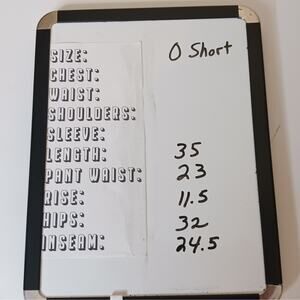 SIZE: 0 Short
CHEST:
WAIST:
SHOULDERS:
SLEEVE:
LENGTH: 35
PANT WAIST: 23
RISE: 11.5
HIPS: 32
INSEAM: 24.5